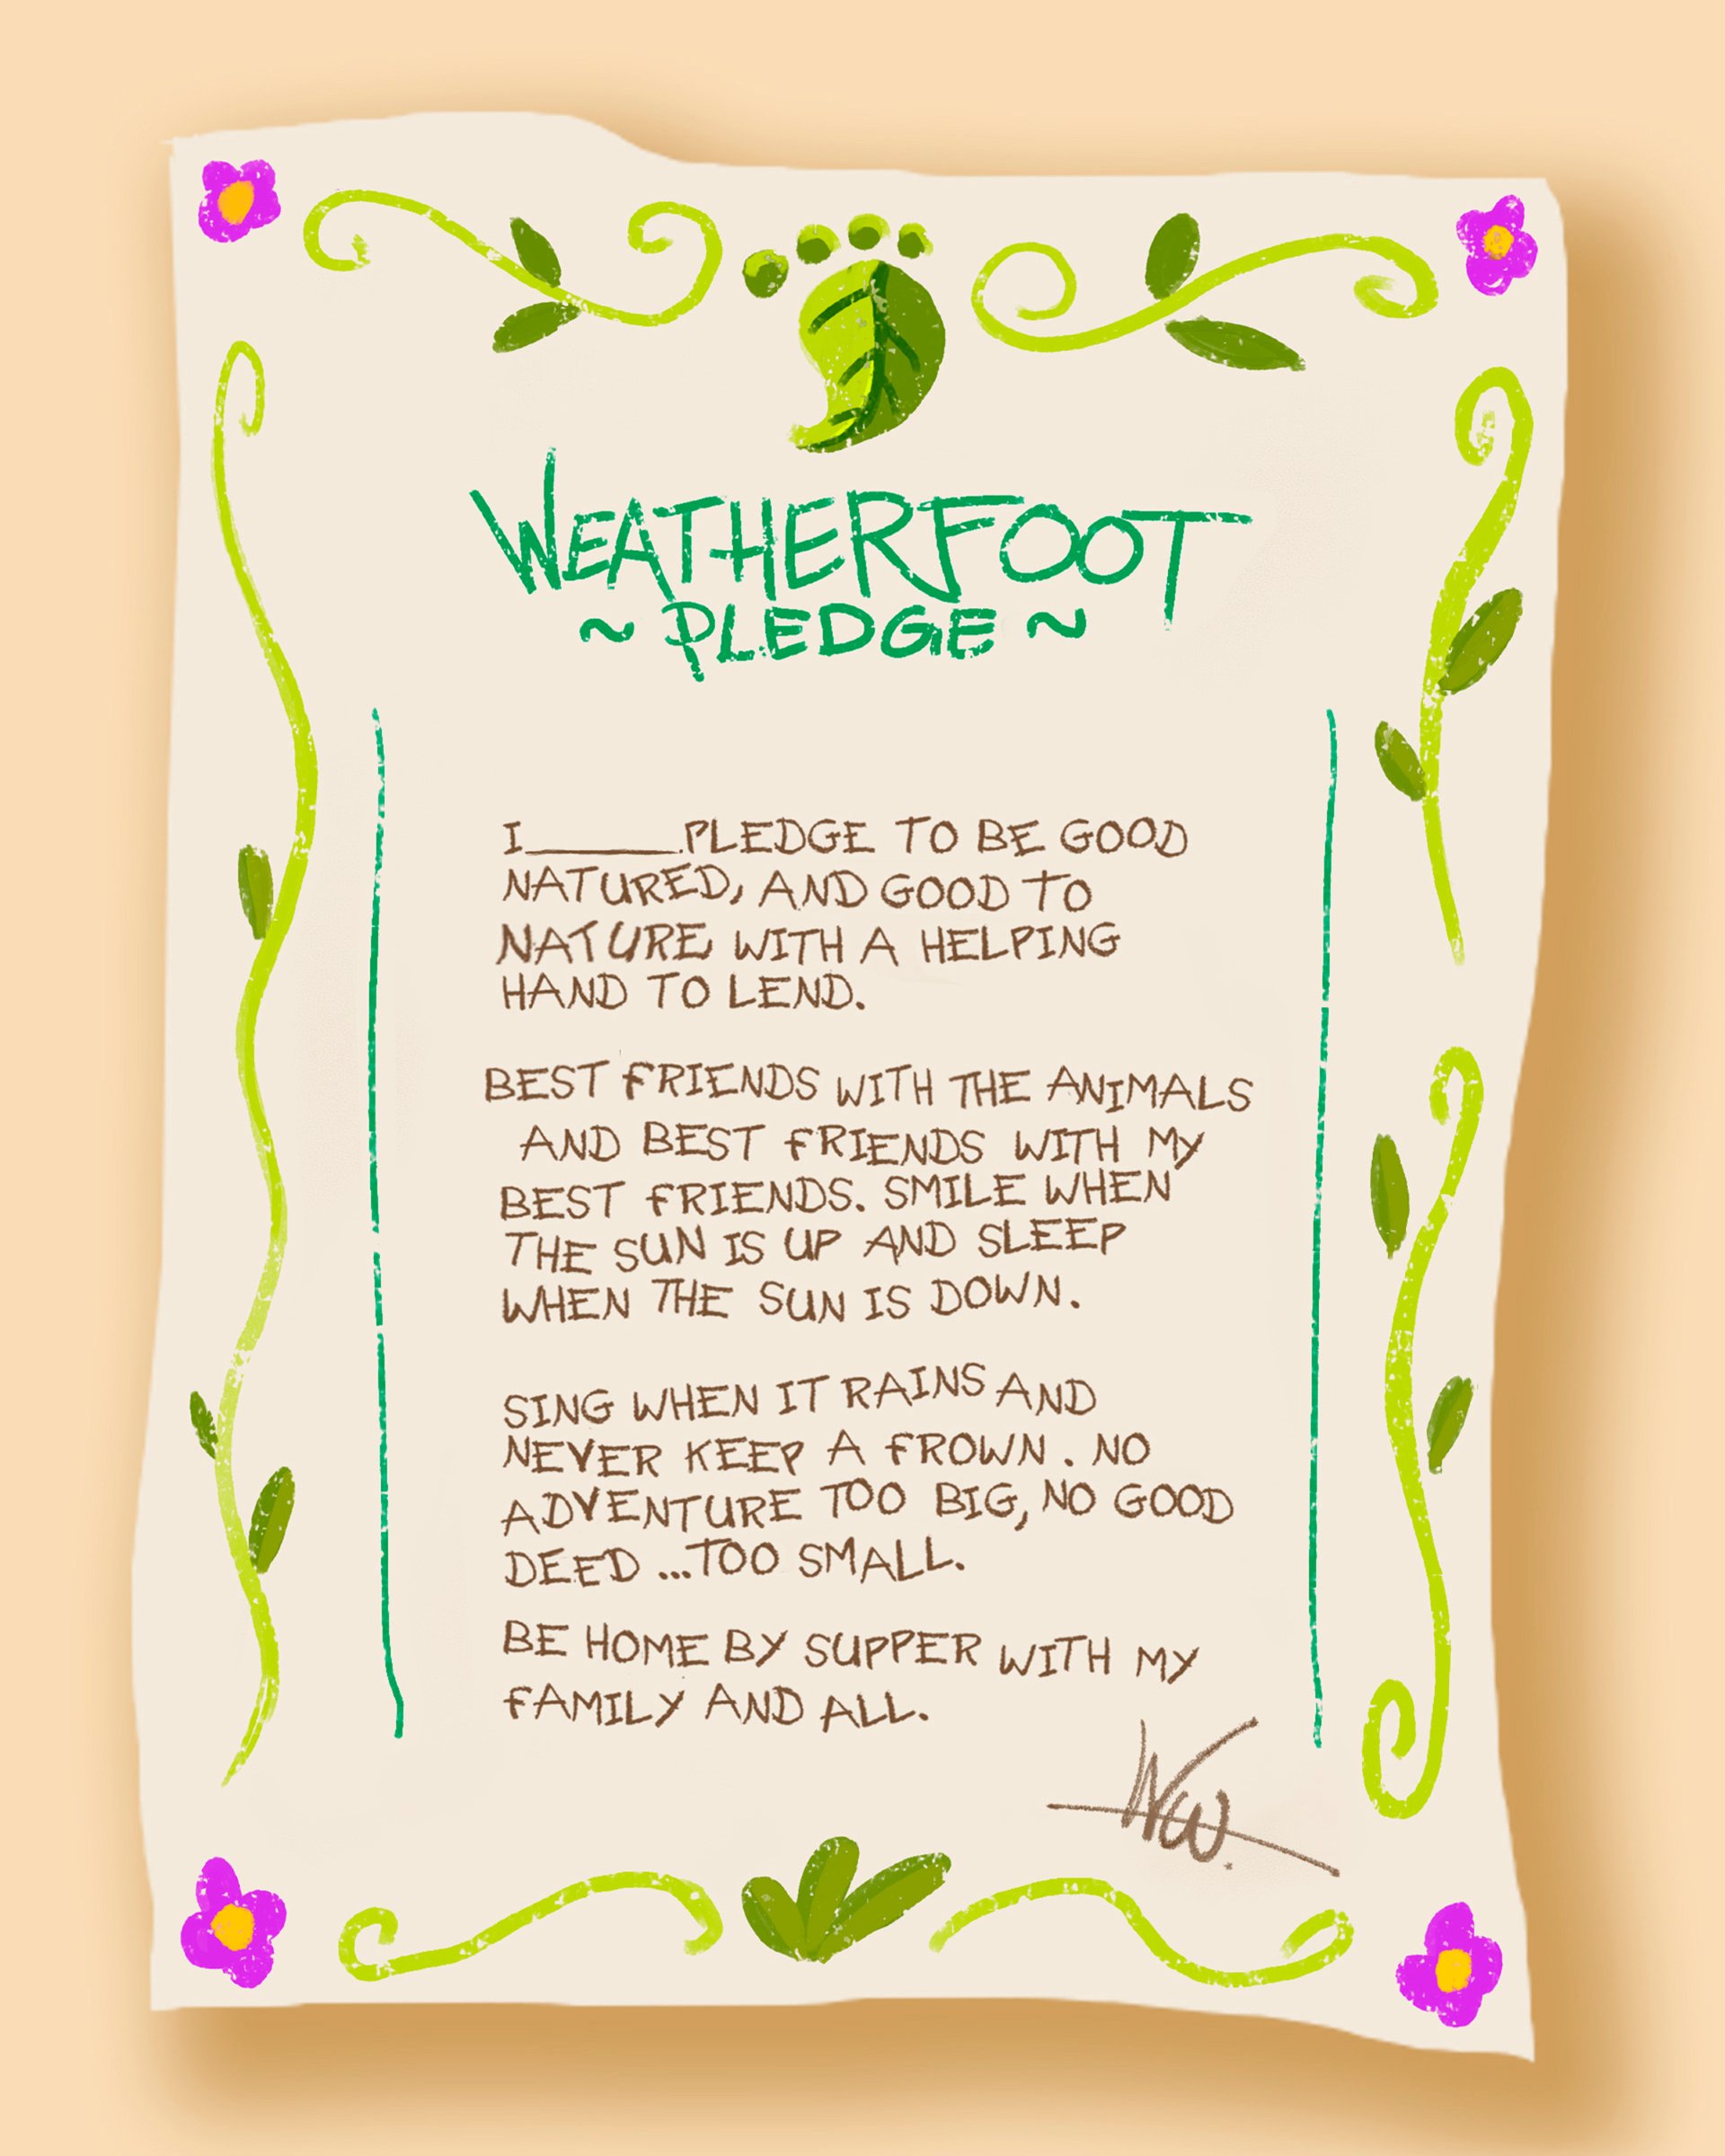 WEATHERFOOT
~ PLEDGE ~
I______PLEDGE TO BE GOOD
NATURED, AND GOOD TO
NATURE WITH A HELPING
HAND TO LEND.
BEST FRIENDS WITH THE ANIMALS
AND BEST FRIENDS WITH MY
BEST FRIENDS. SMILE WHEN
THE SUN IS UP AND SLEEP
WHEN THE SUN IS DOWN.
SING WHEN IT RAINS AND
NEVER KEEP A FROWN. NO
ADVENTURE TOO BIG, NO GOOD
DEED ...TOO SMALL.
BE HOME BY SUPPER WITH MY
FAMILY AND ALL.
WW.